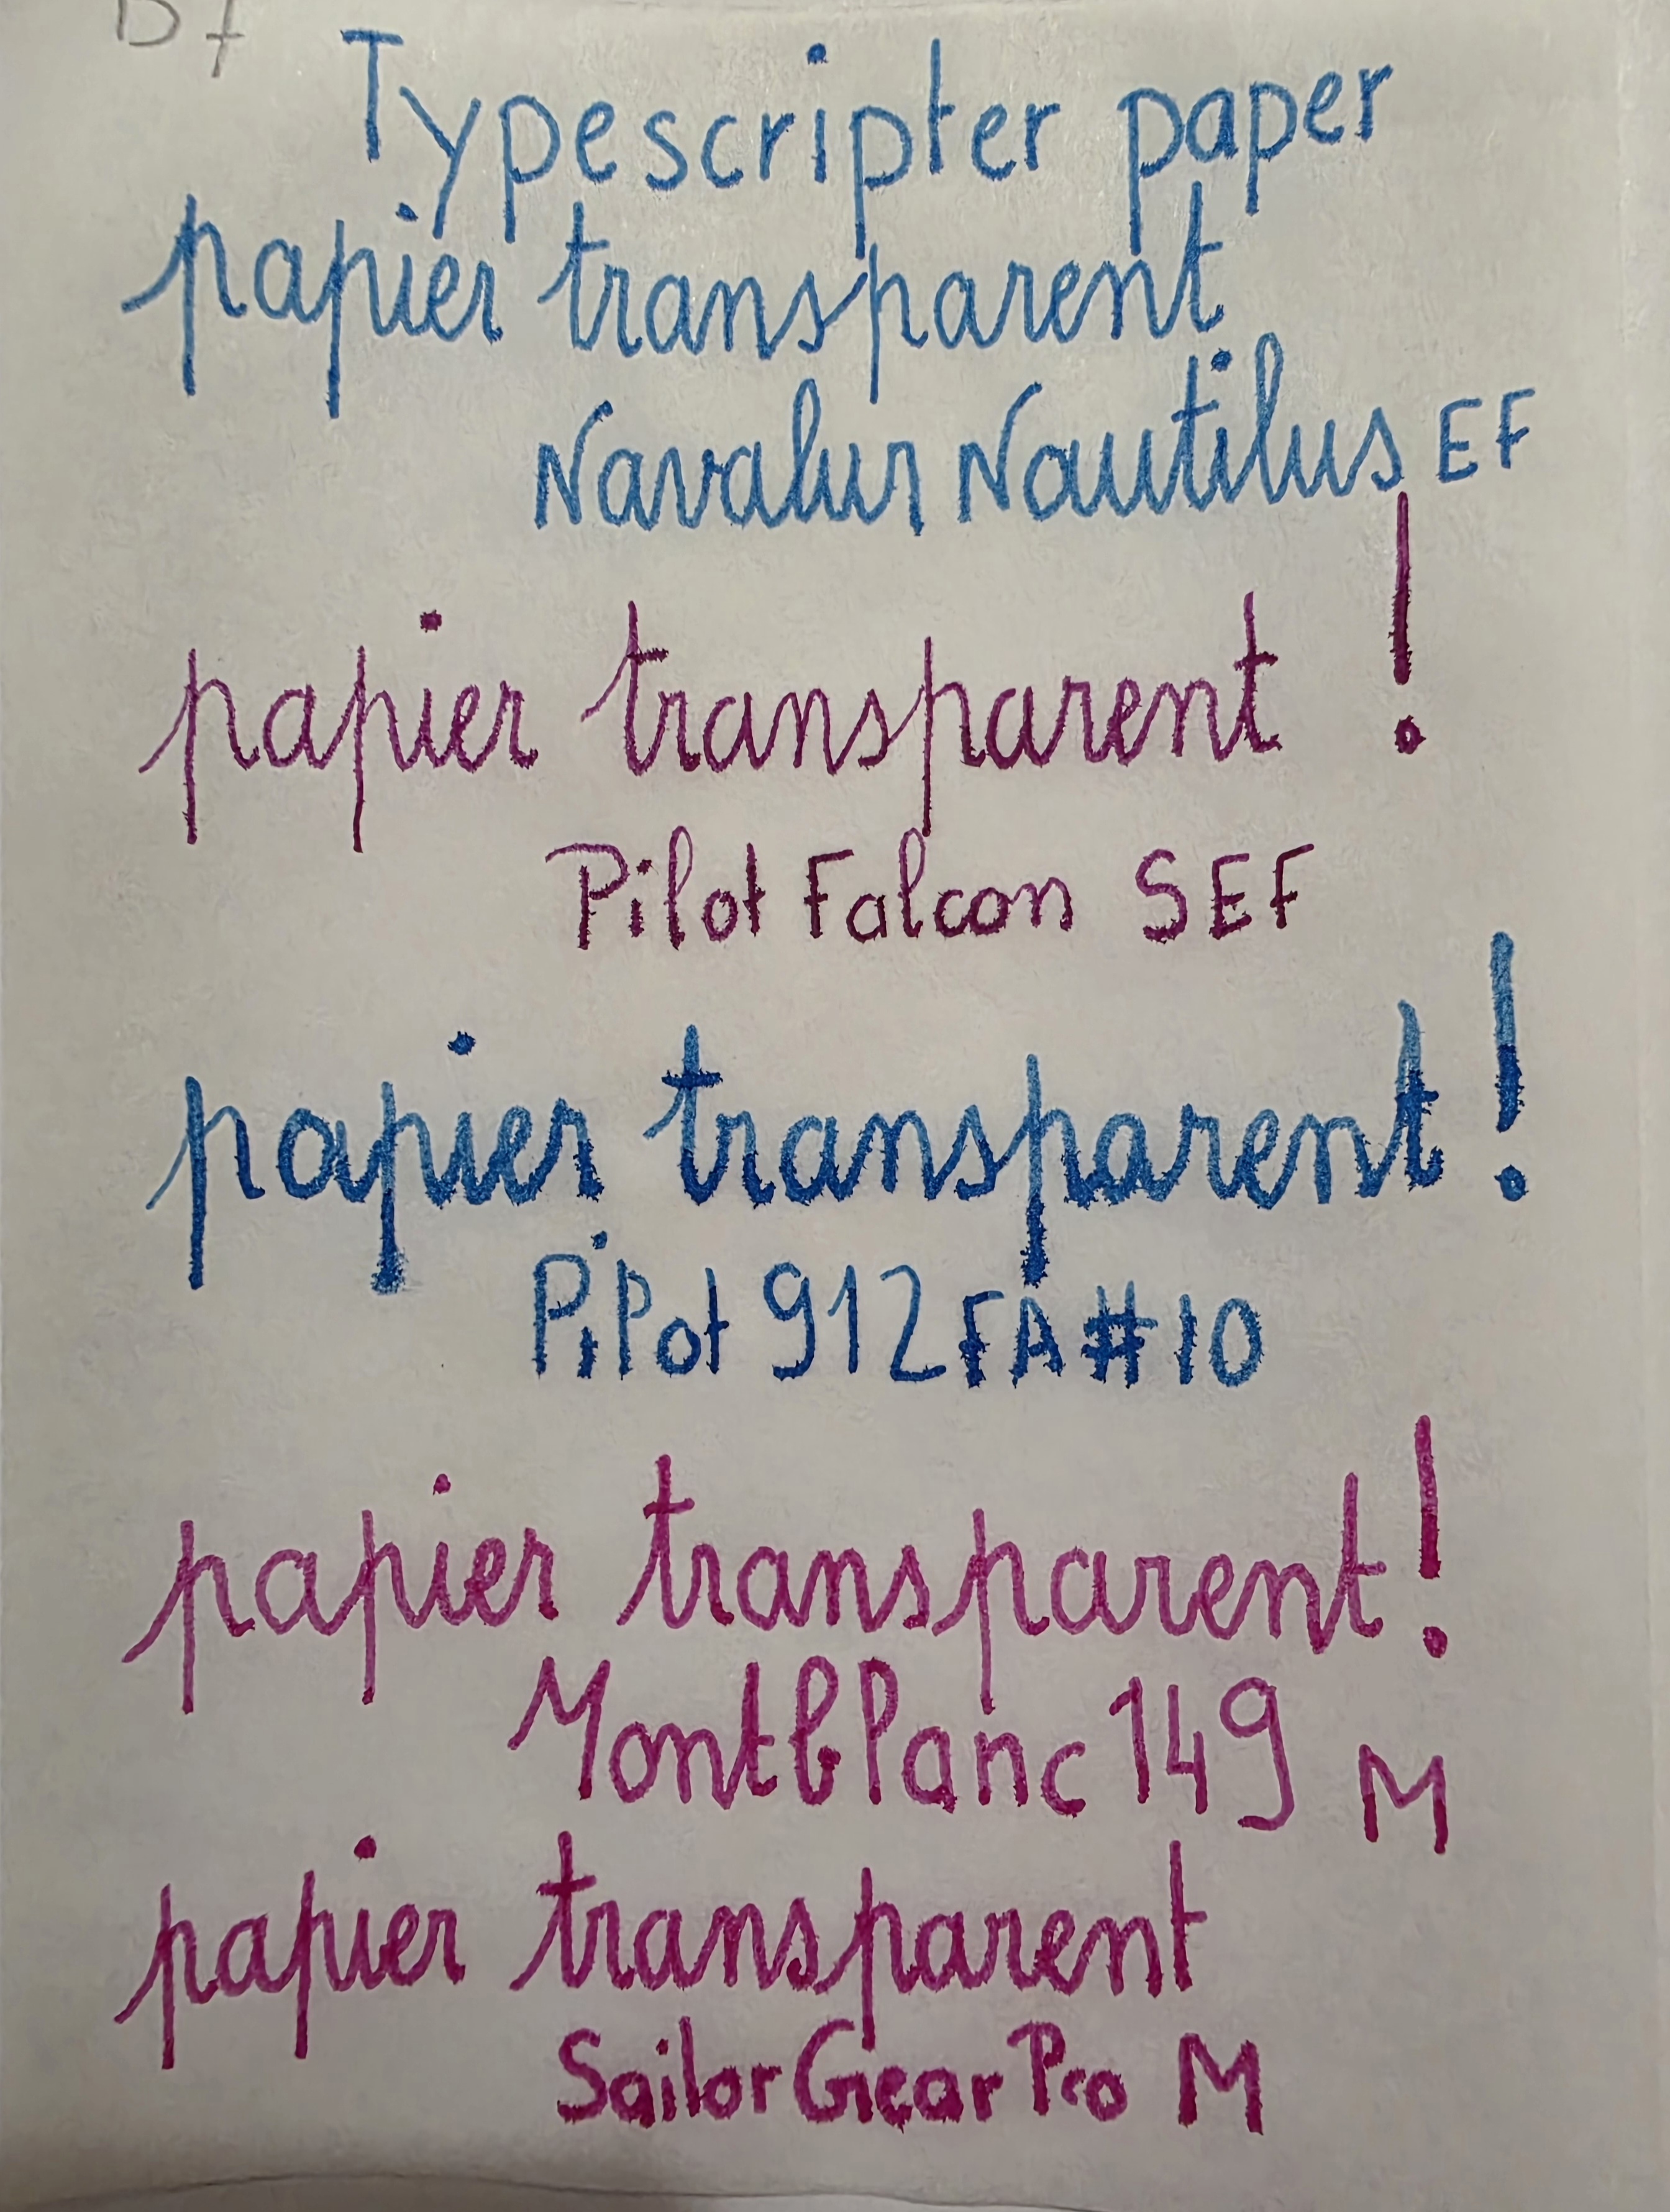 Typescripter paper
papier transparent
Navalur Nautilus EF
papier transparent !
Pilot Falcon SEF
papier transparent!
Pilot 912 FA #10
papier transparent!
Montblanc 149 M
papier transparent
Sailor Gear Pro M